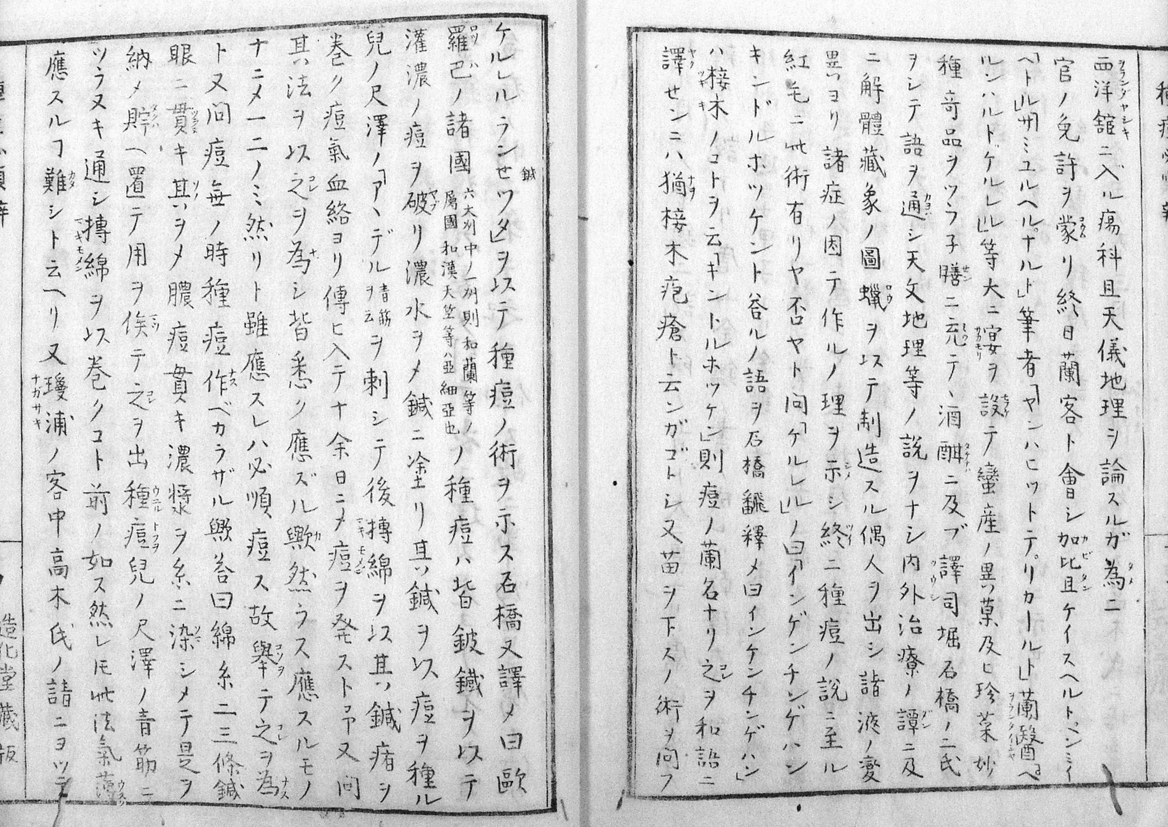 西洋舘ニ入ル瘍科且天儀地理ヲ論スルガ為ニ
官ノ免許ヲ蒙リ終日蘭客ト會シ加比且ケイスヘルト、ヘンミイ
ヘトル州ミユルヘルナルト筆者ヤンハヒツトテリカールト蘭醫ペ
ルンハルトゲルレル等大ニ宴ヲ設テ蠻産ノ異菓及ヒ珍菜妙
種奇品ヲツラ子膳ニ充テ、酒酣ニ及ブ譯司堀石橋ノ二氏
ヲシテ語ヲ通シ天文地理等ノ説ヲナシ内外治療ノ譚ニ及
ニ解體藏象ノ圖蠟ヲ以テ制造スル偶人ヲ出シ諸液ノ変
異ヨリ諸症ノ因テ作ルノ理ヲ示シ終ニ種痘ノ説ニ至ル
紅毛ニ此術有リヤ否ヤト问ケルレルノ曰インゲンチンゲハン
キンドルホツケント答ルノ語ヲ石橋飜釋メ曰インケンチンゲハン
ハ椄木ノコトヲ云キントルホツケン則痘ノ蘭名ナリ之ヲ和語ニ
譯センニハ猶椄木疱瘡ト云ンガゴトシ又苗ヲ下スノ術ヲ问フ
ケルレルランセワタヲ以テ種痘ノ術ヲ示ス石橋又譯メ曰歐
羅巴ノ諸國 六大州中ノ一州則和蘭等ノ 屬國和漢天竺等ハ亞細亞也 ノ種痘ハ皆鈹鍼ヲ以テ
灌濃ノ痘ヲ破リ濃水ヲメ鍼ニ塗リ其鍼ヲ以痘ヲ種ル
兒ノ尺澤ノアヽデル 青筋ヲ云 ヲ刺シテ後摶綿ヲ以其鍼痏ヲ
巻ク痘氣血絡ヨリ傳ヒ入テ十余日ニメ痘ヲ発スト尓又问
其法ヲ以之ヲ為シ皆悉ク應ズル歟然ラス應スルモノ
十ニメ一二ノミ然リト雖應スレハ必順痘ス故舉テ之ヲ為
ト又问痘無ノ時種痘作ベカラザル歟荅曰綿糸二三條鍼
眼ニ貫キ其ヲメ膿痘貫キ濃漿ヲ糸ニ染シメテ是ヲ
納メ貯ヘ置テ用ヲ俟テ之ヲ出種痘兒ノ尺澤ノ青筋ニ
ツラヌキ通シ摶綿ヲ以巻クコト前ノ如ス然レ𪜈此法氣薄
應スルヿ難シト云ヘリ又瓊浦ノ客中高木氏ノ請ニヨツテ
造化堂藏版